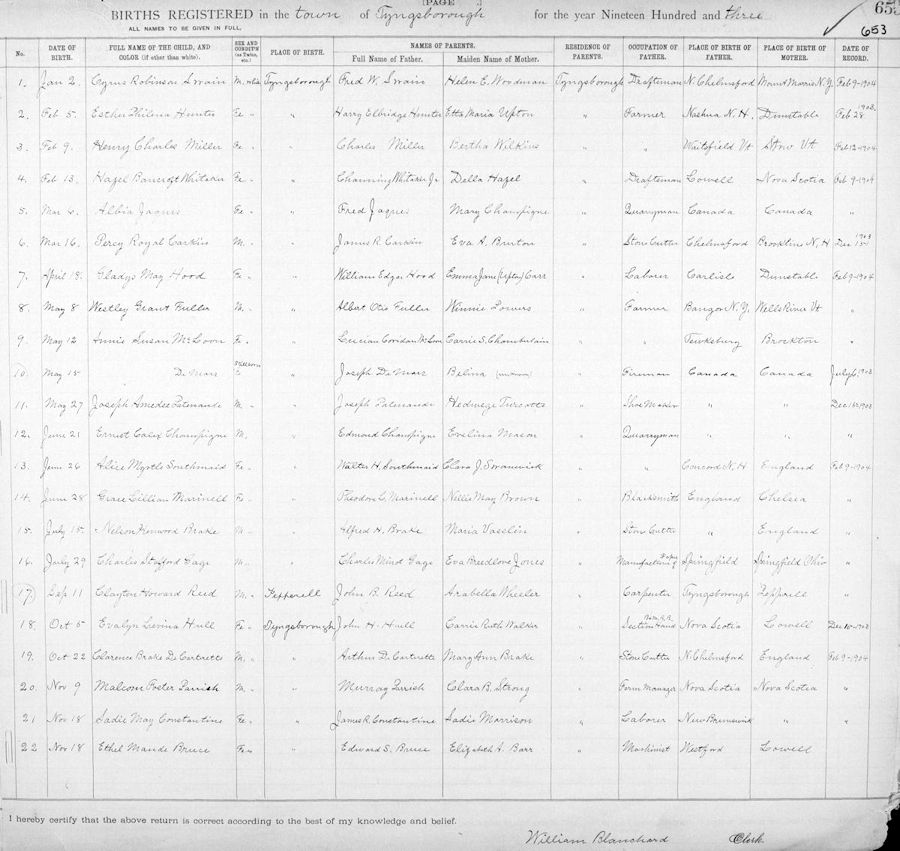 [PAGE ]
BIRTHS REGISTERED in the town of Tyngsborough for the year Nineteen Hundred and three
653
653
ALL NAMES TO BE GIVEN IN FULL.
No. DATE OF BIRTH. FULL NAME OF THE CHILD, AND COLOR (if other than white). SEX AND CONDIT'N (as Twins, etc.) PLACE OF BIRTH. NAMES OF PARENTS. Full Name of Father. Maiden Name of Mother. RESIDENCE OF PARENTS. OCCUPATION OF FATHER. PLACE OF BIRTH OF FATHER. PLACE OF BIRTH OF MOTHER. DATE OF RECORD.
1. Jan 2 Cyrus Robinson Swain M. Tyngsborough Fred W. Swain Helen E. Woodman Tyngsborough Draftsman N. Chelmsford Mount Morris N.Y. Feb 9-1904
2. Feb 5. Esther Philena Hunter Fe " " Harry Elbridge Hunter Etta Maria Upton " Farmer Nashua N.H. Dunstable Feb 28 1903
3. Feb 9. Henry Charles Miller Fe " " Charles Miller Bertha Wilkins " " Waitsfield Vt Stow Vt Feb 12-1904
4. Feb 13. Hazel Bancroft Whitaker Fe " " Channing Whitaker Jr Della Hazel " Draftsman Lowell Nova Scotia Feb 9-1904
5. Mar 6. Albia Jaques Fe " " Fred Jaques Mary Champigne " Quarryman Canada Canada "
6. Mar 16. Percy Royal Carkin M. " " James R. Carkin Eva A. Burton " Stone Cutter Chelmsford Brookline N.H. Dec 15 1903
7. April 18. Gladys May Hood Fe " " William Edgar Hood Emma Jane (Upton) Carr " Laborer Carlisle Dunstable Feb 9-1904
8. May 8 Westley Grant Fuller M. " " Albert Otis Fuller Winnie Lowers " Farmer Bangor N.Y. Wells River Vt "
9. May 12 Annie Susan McLoon Fe " " Lucian Corridan McLoon Carrie S. Chamberlain " " Tewksbury Brockton "
10. May 15 De Mars Stillborn " Joseph De Mars Belina (unknown) " Fireman Canada Canada July 6, 1903
11. May 27 Joseph Amedee Patenaude M. " " Joseph Patenaude Hedwege Turcotte " Shoe Maker " " Dec 15 1903
12. June 21 Ernest Calex Champigne M. " Edmond Champigne Evelina Meason " Quarryman " " "
13. June 26 Alice Myrtle Southmaid Fe " " Walter H. Southmaid Clara J. Swanwick " " Concord N.H England Feb 9-1904
14. June 28 Grace Lillian Marinell Fe " " Theodore L. Marinell Nellie May Brown " Blacksmith England Chelsea "
15. July 15 Nelson Henwood Brake M " " Alfred H. Brake Maria Vaselin " Stone Cutter " England "
16. July 29 Charles Stafford Gage M. " " Charles Minot Gage Eva Breedlove Jones " Manufacturing Springfield Springfield Ohio "
17. Sep 11 Clayton Howard Reed M. " Pepperell John B. Reed Arabella Wheeler " Carpenter Tyngsborough Pepperell "
18. Oct 5 Evalyn Levina Hull Fe " Tyngsborough John H. Hull Carrie Ruth Walker " B. & M. R.R. Section Hand Nova Scotia Lowell Dec 15-1903
19. Oct 22 Clarence Brake De Carterette M. " " Arthur De Carterette Mary Ann Brake " Stone Cutter N. Chelmsford England Feb 9-1904
20. Nov 9 Malcom Foster Parish M. " " Murray Parish Clara B. Strong " Farm Manager Nova Scotia Nova Scotia "
21 Nov 18 Sadie May Constantine Fe " " James R. Constantine Sadie Morrison " Laborer New Brunswick " "
22 Nov 18 Ethel Maude Bruce Fe " " Edward S. Bruce Elizabeth A. Barr " Machinist Westford Lowell "
I hereby certify that the above return is correct according to the best of my knowledge and belief.
William Blanchard Clerk.